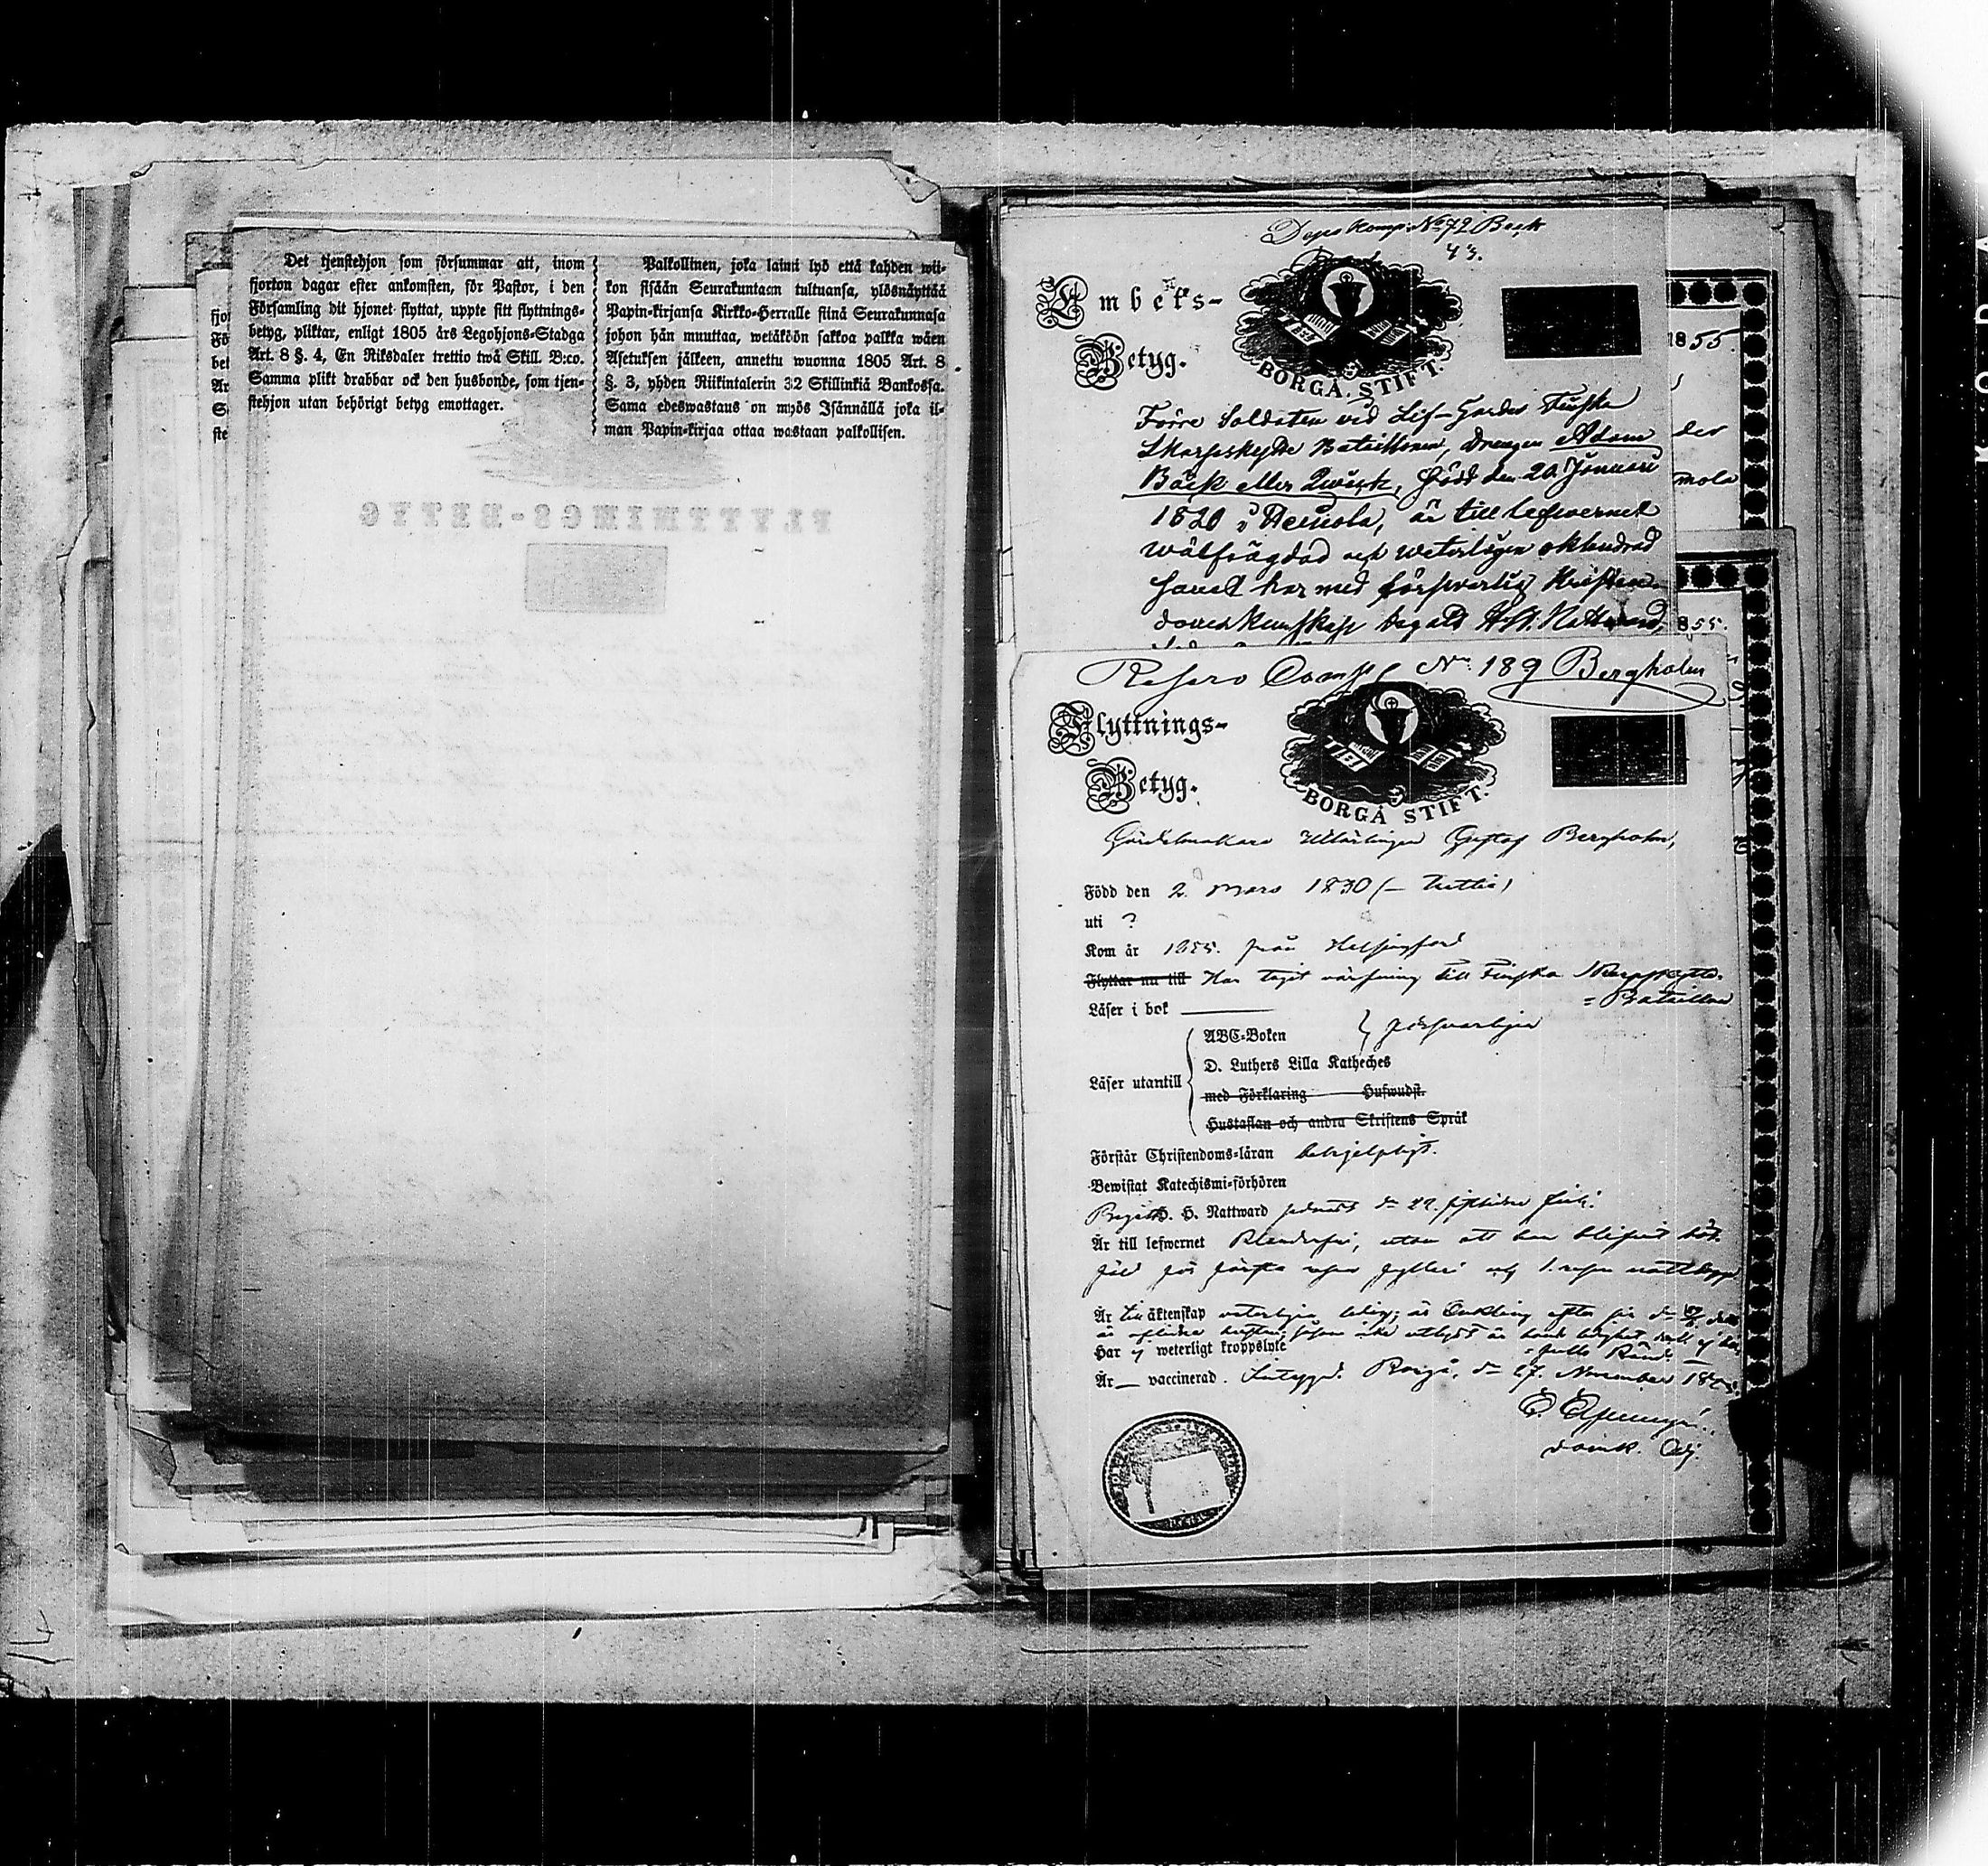 Det tjenstehjon som försummar att, inom
fjorton dagar efter ankomsten, för Pastor, i den
Församling dit hjonet flyttat, uppte sitt flyttnings-
betyg, pliktar, enligt 1805 års Legohjons-Stadga
Art. 8 §. 4, En Riksdaler trettio twå Skill. B:co.
Samma plikt drabbar ock den husbonde, som tjen-
stehjon utan behörigt betyg emottager.
Palkollinen, joka laimi lyö että kahden wii-
kon sisään Seurakuntaan tultuansa, ylösnäyttää
Papin-kirjansa Kirkko-Herralle siinä Seurakunnasa
johon hän muuttaa, wetäköön sakkoa palkka wäen
Asetuksen jälkeen, annettu wuonna 1805 Art. 8
§. 3, yhden Riikintalerin 32 Skillinkiä Bankossa.
Sama edeswastaus on myös Isännällä joka il-
man Papin-kirjaa ottaa wastaan palkollisen.
FLYTTNINGS-BETYG
Komp. No 72 Beck
43.
Embets-
Betyg.
BORGÅ STIFT.
Förre Soldaten vid Lif-Gardes Finska
Skarpskytte Bataillonen, Drengen Adam
Bäck eller Qwick, född den 20 Januari
1820 i Heinola, är till lefwernet
wälfrägdad och weterligen oklandrad
samt har med försvarlig Kristen-
domskunskap begått H. H. Nattward,
1855.
der
mola
855.
Reserv Comp No 189 Bergholm
Flyttnings-
Betyg.
BORGÅ STIFT.
Gördelmakare Utlärlingen Gustaf Bergholm,
Född den 2 Mars 1830 (= trettio)
uti ?
Kom år 1855. från Helsingfors
Flyttar nu till Har tagit värfning till Finska Skarpskytte-
= Bataillon
Läser i bok
Läser utantill
ABC-Boken } försvarligen
D. Luthers Lilla Katheches
med Förklaring Hufwudst.
Hustaflan och andra Skriftens Språk
Förstår Christendoms-läran behjelpligt.
Bewistat Katechismi-förhören
Begått H. H. Nattward sednast d. 29. sistlidne Juli.
Är till lefwernet klanderfri, utom att han blifvit böt-
fäld för första resan fylleri och 1. resan
Är till äktenskap veterligen ledig; är Enkling efter
Har ej weterligt kroppslyte
Är — vaccinerad. Borgå, d. 27. November